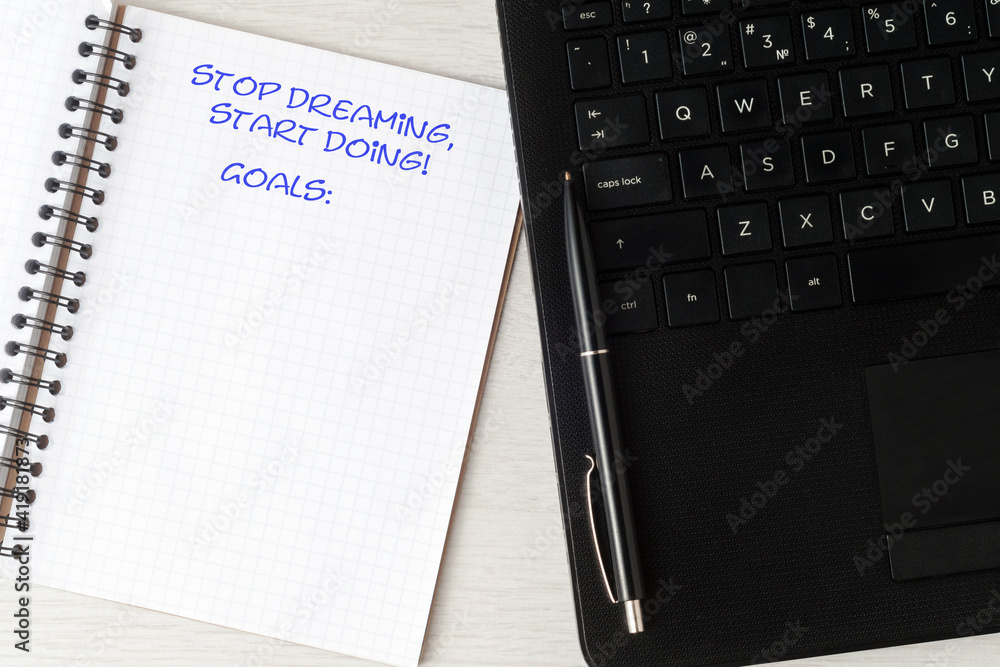 STOP DREAMING,
START DOING!
GOALS:
esc
? 
~ ! 1 @ 2 " # 3 № $ 4 ; % 5 ^ 6 :
Q W E R T Y
caps lock A S D F G
Z X C V B
ctrl fn alt
Adobe Stock | #419181873
Adobe Stock